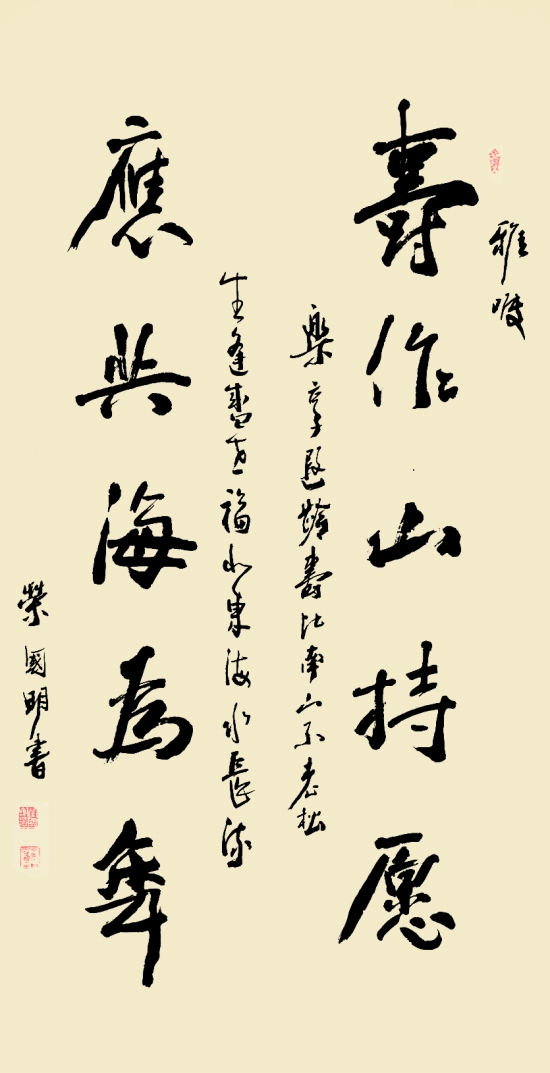 雅嘱
壽作山持愿
樂享遐齡壽比南山不老松
生逢盛世福如東海水長流
應與海為年
榮國明書